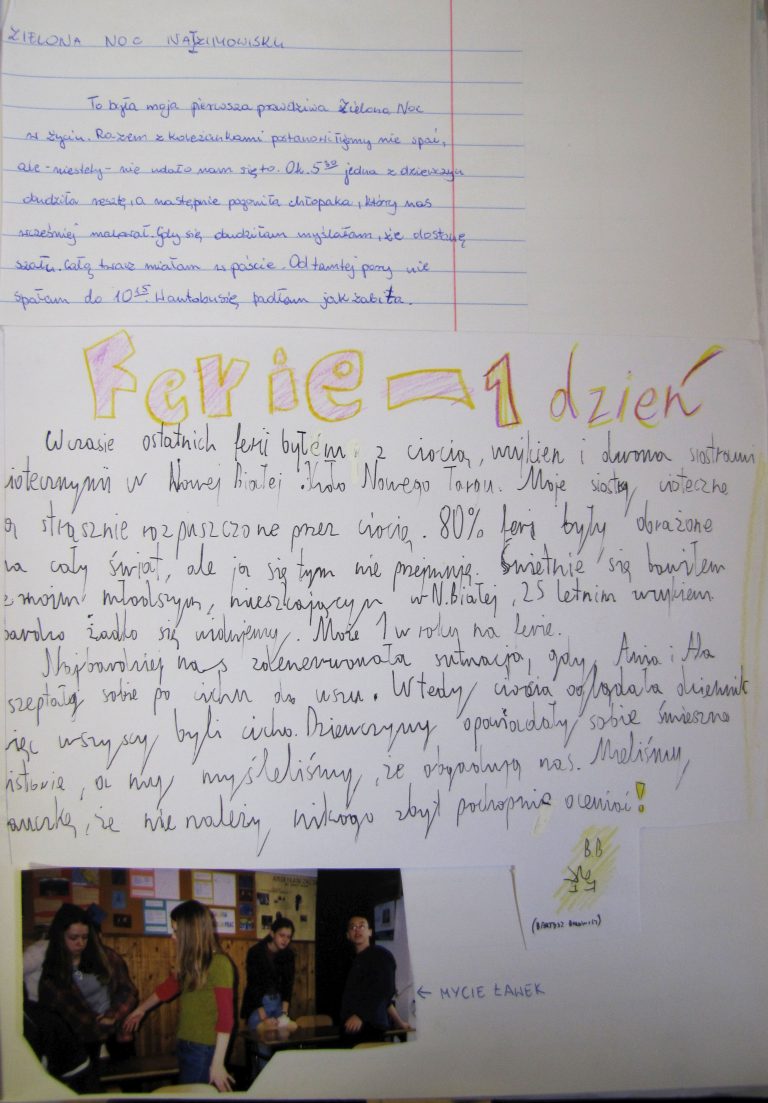 ZIELONA NOC NA ZIMOWISKU
To była moja pierwsza prawdziwa Zielona Noc
w życiu. Razem z koleżankami postanowiłyśmy nie spać,
ale - niestety - nie udało nam się to. Ok. 5³⁰ jedna z dziewczyn
budziła resztę, a następnie pogoniła chłopaka, który nas
wcześniej malował. Gdy się budziłam myślałam, że dostanę
szału. Całą twarz miałam w paście. Od tamtej pory nie
spałam do 10¹⁵. W autobusie padłam jak zabita.
Ferie - 1 dzień
W czasie ostatnich ferii byłem z ciocią, wujkiem i dwoma siostrami
ciotecznymi w Nowej Białej. Koło Nowego Targu. Moje siostry cioteczne
są strasznie rozpuszczone przez ciocią. 80% ferii były obrażone
na cały świat, ale ja się tym nie przejmuję. Świetnie się bawiłem
z moim młodszym, mieszkającym w N. Białej, 25 letnim wujkiem
bardzo żadko się widujemy. Może 1 w roku na ferie.
Najbardziej nas zdenerwowała sytuacja, gdy Ania i Ala
szeptały sobie po cichu do uszu. Wtedy ciocia oglądała dziennik
więc wszyscy byli cicho. Dziewczyny opowiadały sobie śmieszne
historie, a my myśleliśmy, że obgadują nas. Mieliśmy
nauczkę, że nie należy nikogo zbyt pochopnie oceniać!
B.B
← MYCIE ŁAWEK